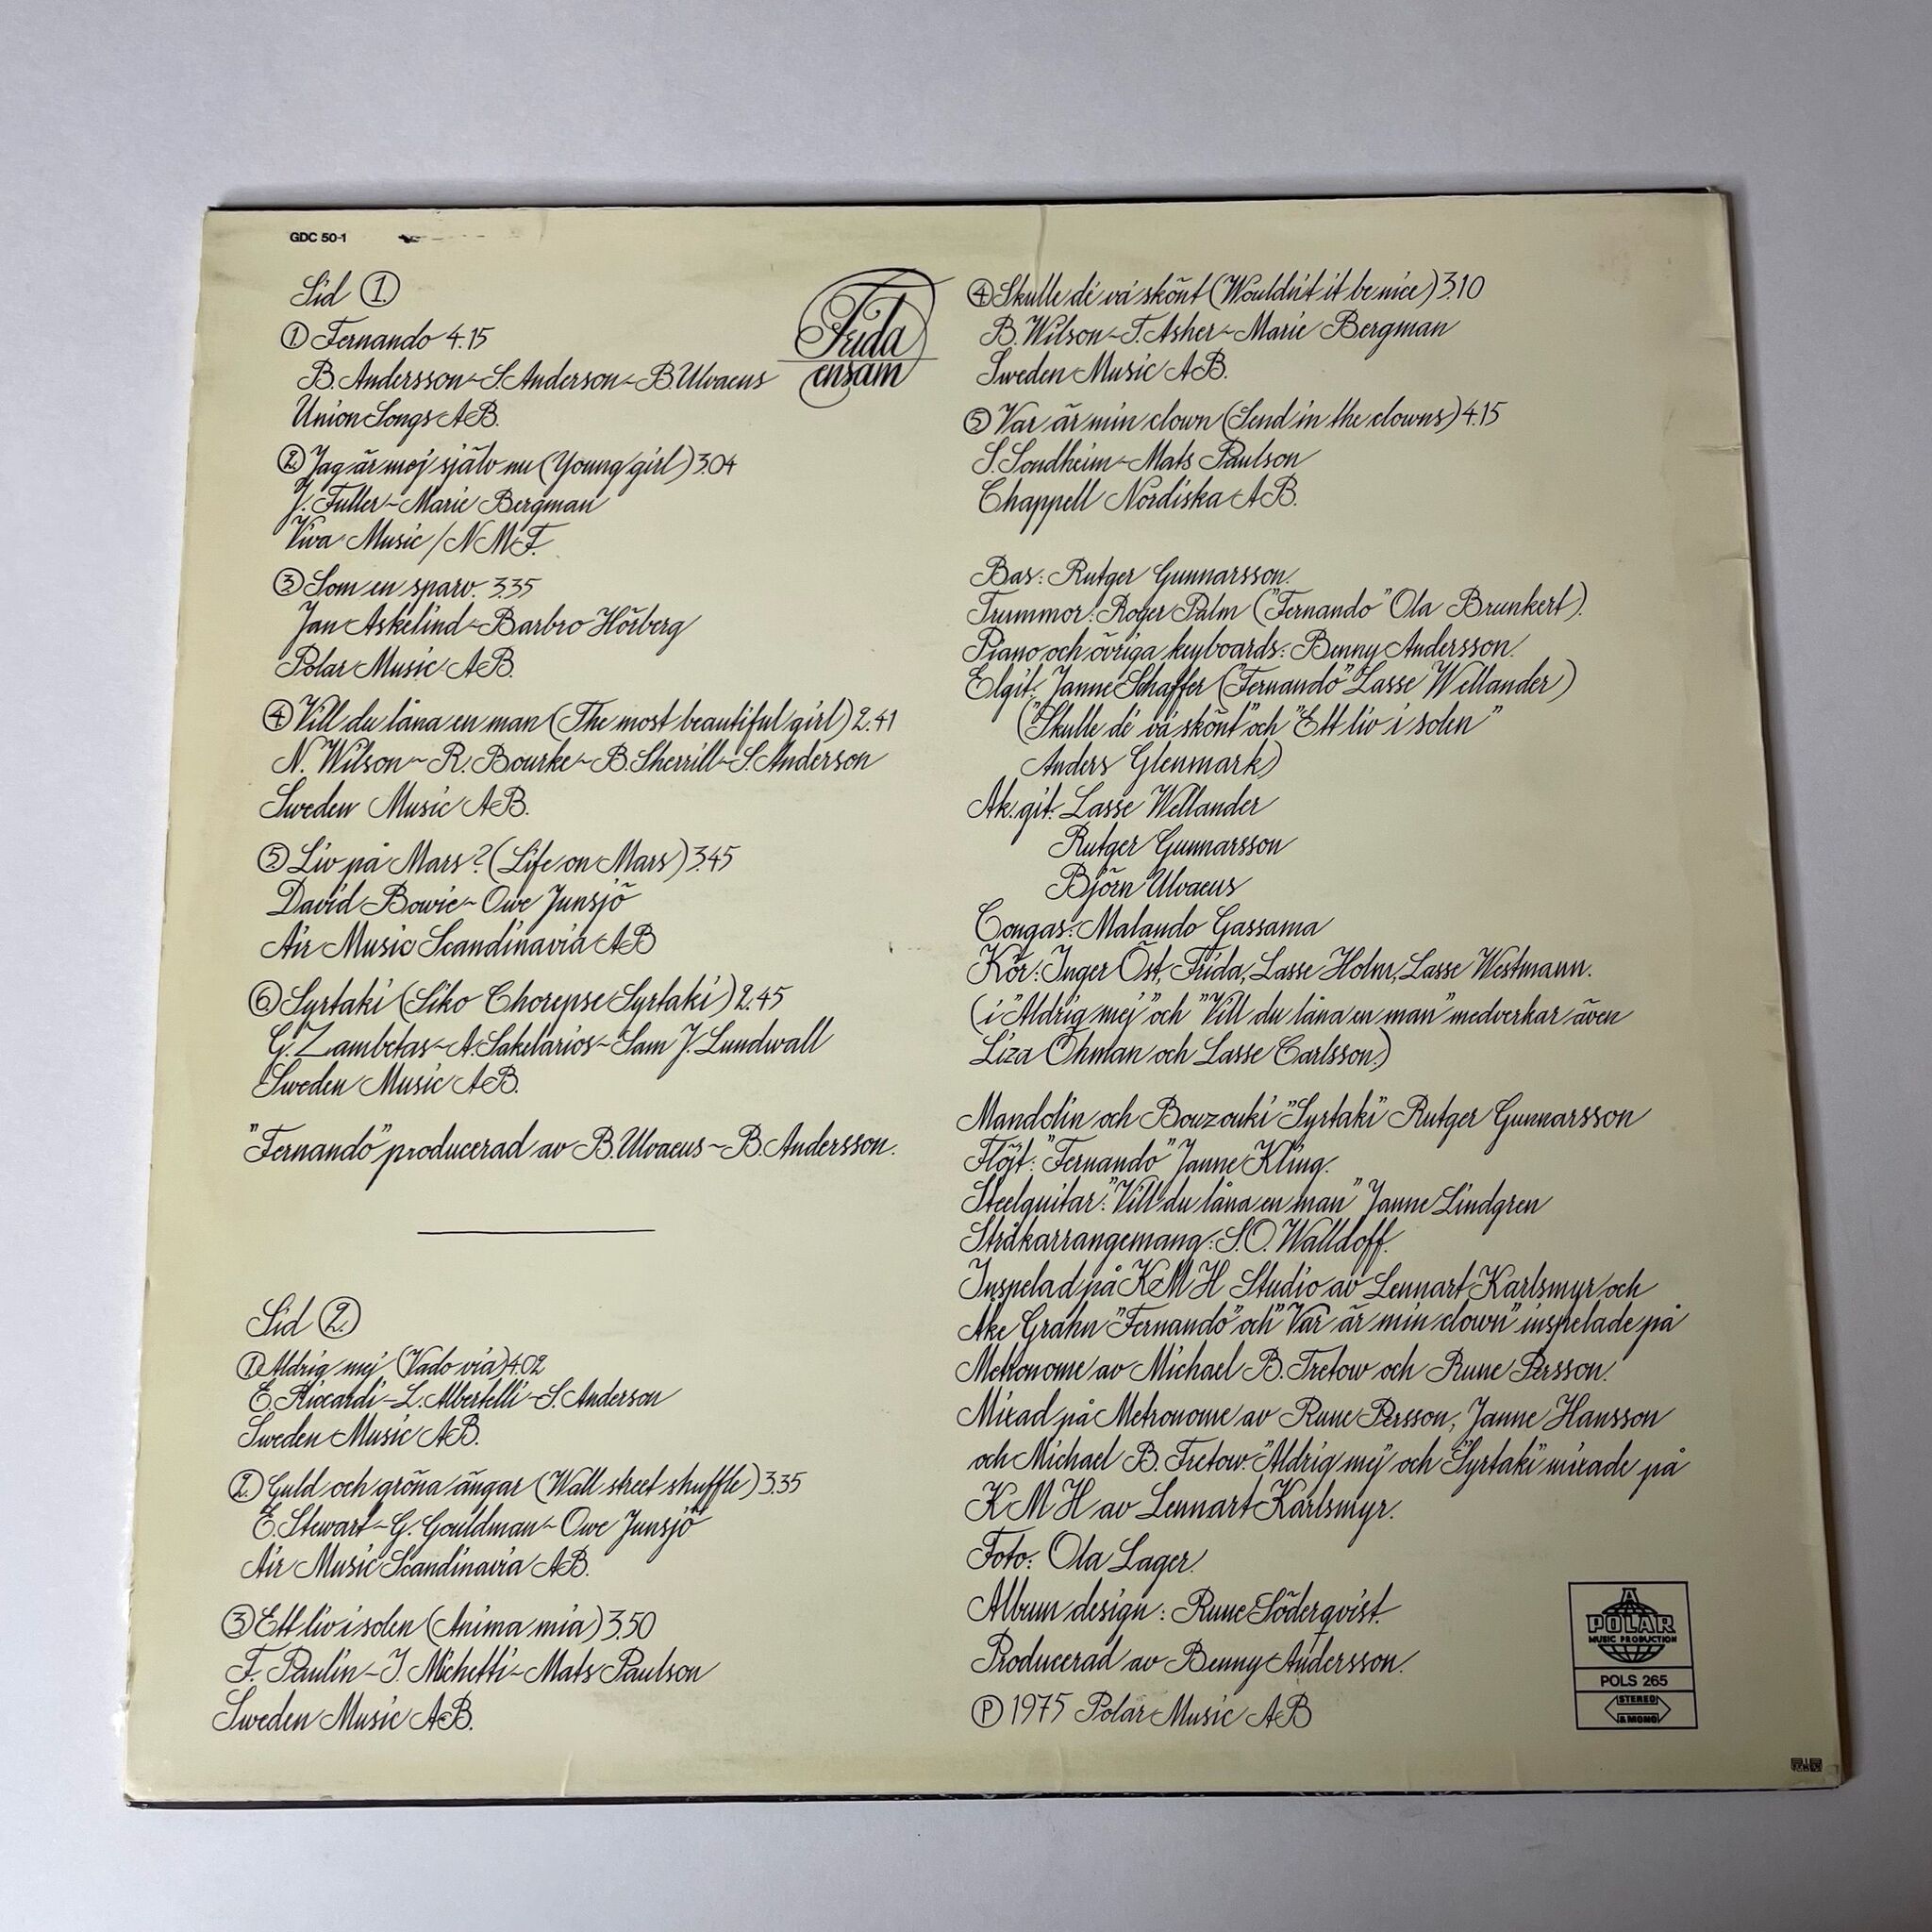 GDC 50-1
Sid 1.
1. Fernando 4.15
B. Andersson ~ S. Anderson ~ B. Ulvaeus
Union Songs AB.
2. Jag är mej själv nu (Young girl) 3.04
J. Fuller ~ Marie Bergman
Viva Music / NMF.
3. Som en sparv. 3.35
Jan Askelind ~ Barbro Hörberg
Polar Music AB.
4. Vill du låna en man (The most beautiful girl) 2.41
N. Wilson ~ R. Bourke ~ B. Sherrill ~ S. Anderson
Sweden Music AB.
5. Liv på Mars? (Life on Mars) 3.45
David Bowie ~ Owe Junsjö
Air Music Scandinavia AB
6. Syrtaki (Siko Chorepse Syrtaki) 2.45
G. Zambetas ~ A. Sakelarios ~ Sam J. Lundwall
Sweden Music AB.
"Fernando" producerad av B. Ulvaeus ~ B. Andersson.
Sid 2.
1. Aldrig mej (Vado via) 4.02
E. Riccardi – L. Albertelli – S. Anderson
Sweden Music AB.
2. Guld och gröna ängar (Wall street shuffle) 3.35
E. Stewart ~ G. Gouldman ~ Owe Junsjö
Air Music Scandinavia AB.
3. Ett liv i solen (Anima mia) 3.50
F. Paulin ~ I. Michetti ~ Mats Paulson
Sweden Music AB.
Frida
ensam
4. Skulle de' va' skönt (Wouldn't it be nice) 3.10
B. Wilson ~ T. Asher ~ Marie Bergman
Sweden Music AB.
5. Var är min clown (Send in the clowns) 4.15
S. Sondheim ~ Mats Paulson
Chappell Nordiska AB.
Bas: Rutger Gunnarsson.
Trummor: Roger Palm ("Fernando" Ola Brunkert).
Piano och övriga keyboards: Benny Andersson.
Elgit: Janne Schaffer ("Fernando" Lasse Wellander)
("Skulle de' va' skönt" och "Ett liv i solen"
Anders Glenmark)
Ak. git: Lasse Wellander
Rutger Gunnarsson
Björn Ulvaeus
Congas: Malando Gassama
Kör: Inger Öst, Frida, Lasse Holm, Lasse Westmann.
(i "Aldrig mej" och "Vill du låna en man" medverkar även
Liza Öhman och Lasse Carlsson.)
Mandolin och Bouzouki "Syrtaki" Rutger Gunnarsson
Flöjt: "Fernando" Janne Kling.
Steelguitar: "Vill du låna en man" Janne Lindgren
Stråkarrangemang: S.O. Walldoff.
Inspelad på KMH Studio av Lennart Karlsmyr och
Åke Grahn "Fernando" och "Var är min clown" inspelade på
Metronome av Michael B. Tretow och Rune Persson.
Mixad på Metronome av Rune Persson, Janne Hansson
och Michael B. Tretow. "Aldrig mej" och "Syrtaki" mixade på
KMH av Lennart Karlsmyr.
Foto: Ola Lager.
Album design: Rune Söderqvist.
Producerad av Benny Andersson.
Ⓟ 1975 Polar Music AB
A
POLAR
MUSIC PRODUCTION
POLS 265
STEREO
& MONO